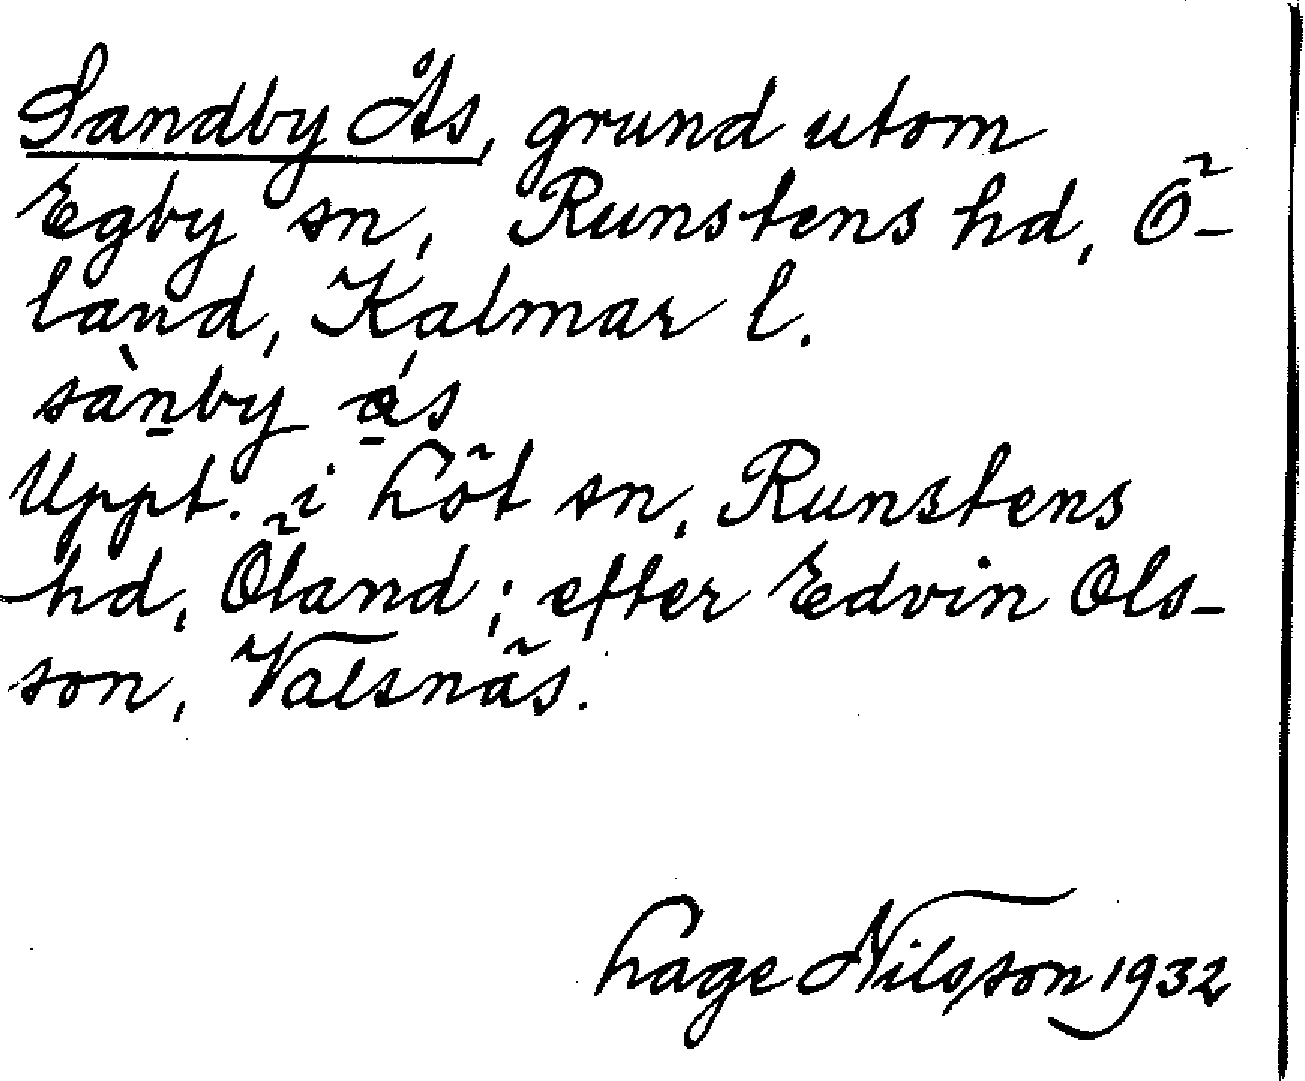 Sandby Ås, grund utom
Egby sn, Runstens hd, Ö-
land, Kalmar l.
sàn̲by ǻ̲s
Uppt. i Löt sn, Runstens
hd, Öland; efter Edvin Ols-
son, Valsnäs.
Lage Nilsson 1932